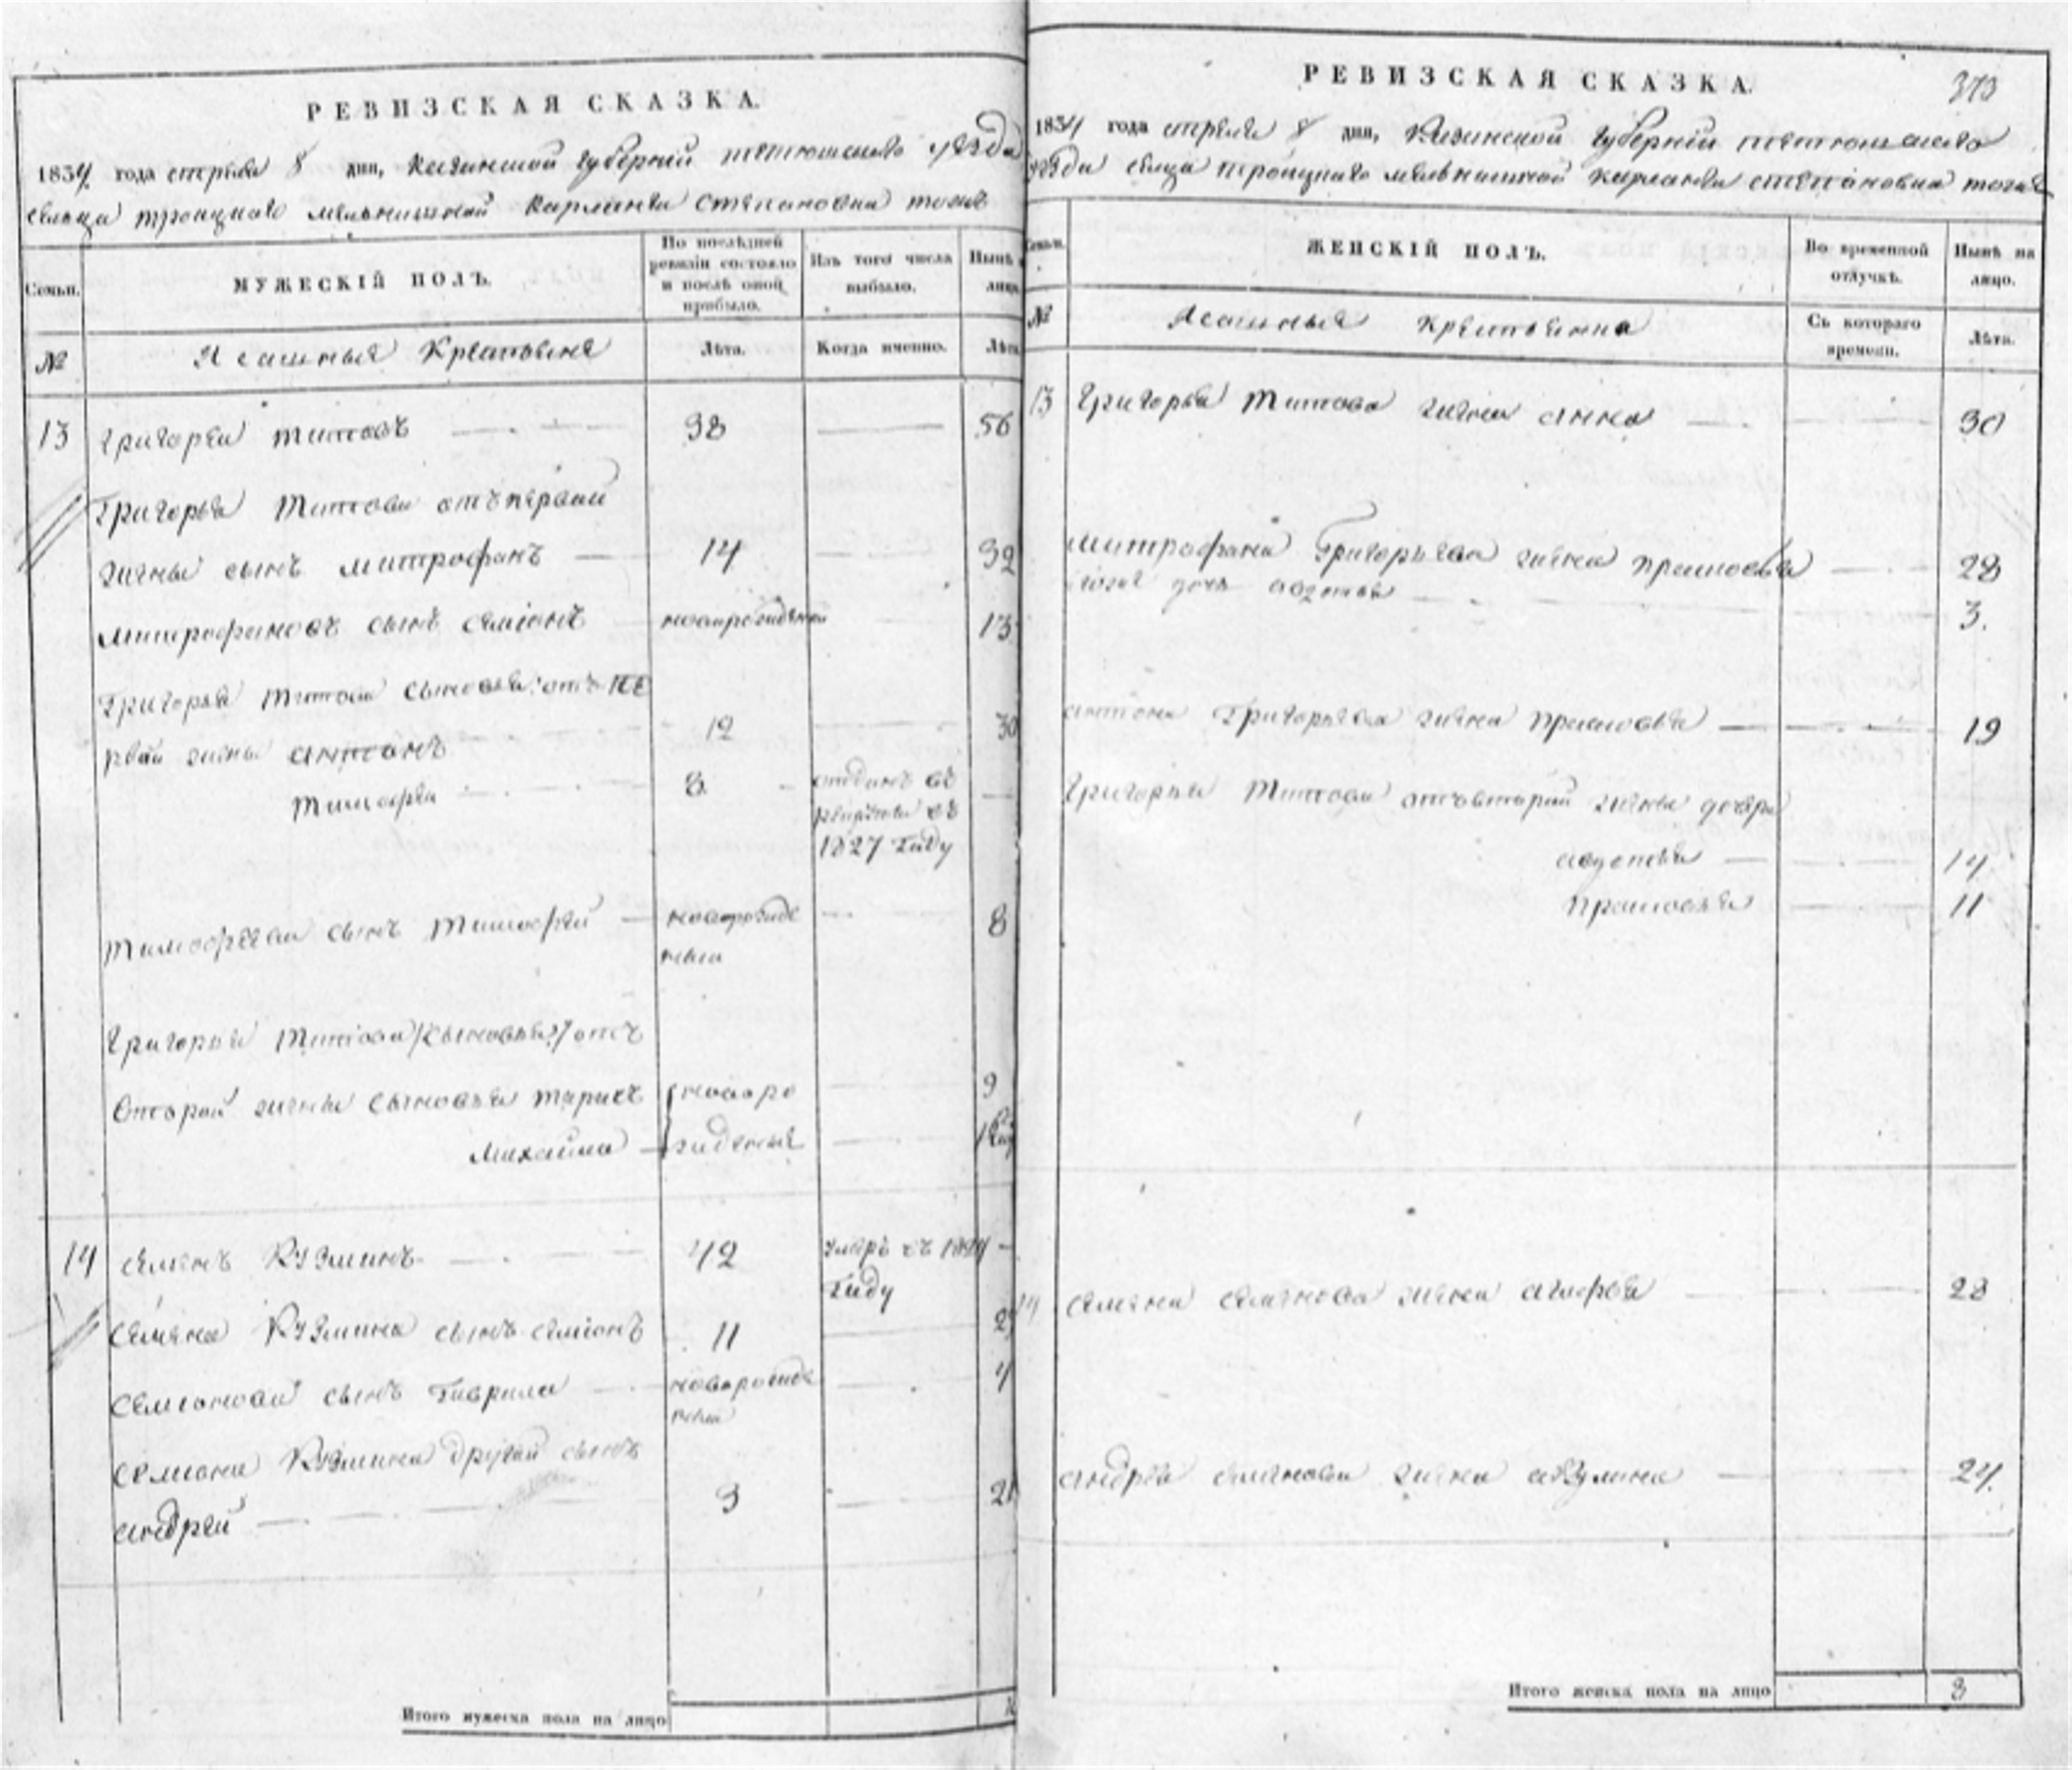 РЕВИЗСКАЯ СКАЗКА.
1834 года апреля 8 дня, Казанской губернiи тетюшскаго уѣзда
сельца троицкаго мельничной Карланга Степановка тожъ
Семьи.
МУЖЕСКIЙ ПОЛЪ.
По послѣдней ревизiи состояло и послѣ оной прибыло.
Изъ того числа выбыло.
Нынѣ на лицо.
№
Ясашныя Крестьяне
Лѣта.
Когда именно.
Лѣта
13 григорей титовъ 38 56
Григорья Титова отъ первай
жены сынъ митрофанъ 14 32
митрофановъ сынъ семiонъ новорожденна 13
Григорья титова сыновья: отъ пе
рвай жены антонъ 12 30
тимофеи 8 отданъ въ
рекруты въ
1827 Году
тимофеева сынъ Тимофей новорожде 8
нная
григорья титова /сыновья:/ отъ
второй жены сыновья тарасъ новоро 9
михайла жденыя
14 семенъ Кузминъ 42 умеръ въ
Году
семена Кузмина сынъ семiонъ 11 29
семiонова сынъ Гаврила новорожде 4
ная
семiона Кузмина другой сынъ
андрей 3 21
Итого мужеска пола на лицо
РЕВИЗСКАЯ СКАЗКА.
373
1834 года апреля 8 дня, Казанской губернiи тетюшскаго
уѣзда сельца троицкаго мельничной карланга степановка тожъ
Семьи.
ЖЕНСКIЙ ПОЛЪ.
Во временной отлучкѣ.
Нынѣ на лицо.
№
Ясашныя крестьянка
Съ котораго времени.
Лѣта.
13 григорья титова жена анна 30
митрофана григорьева жена прасковья 28
тогоже дочь авдотья 3.
антона григорьева жена прасковья 19
григорья титова отъ второй жены дочери
авдотья 14
прасковья 11
14 семена семенова жена 28
андрея семенова жена акулина 24.
Итого женска пола на лицо 8